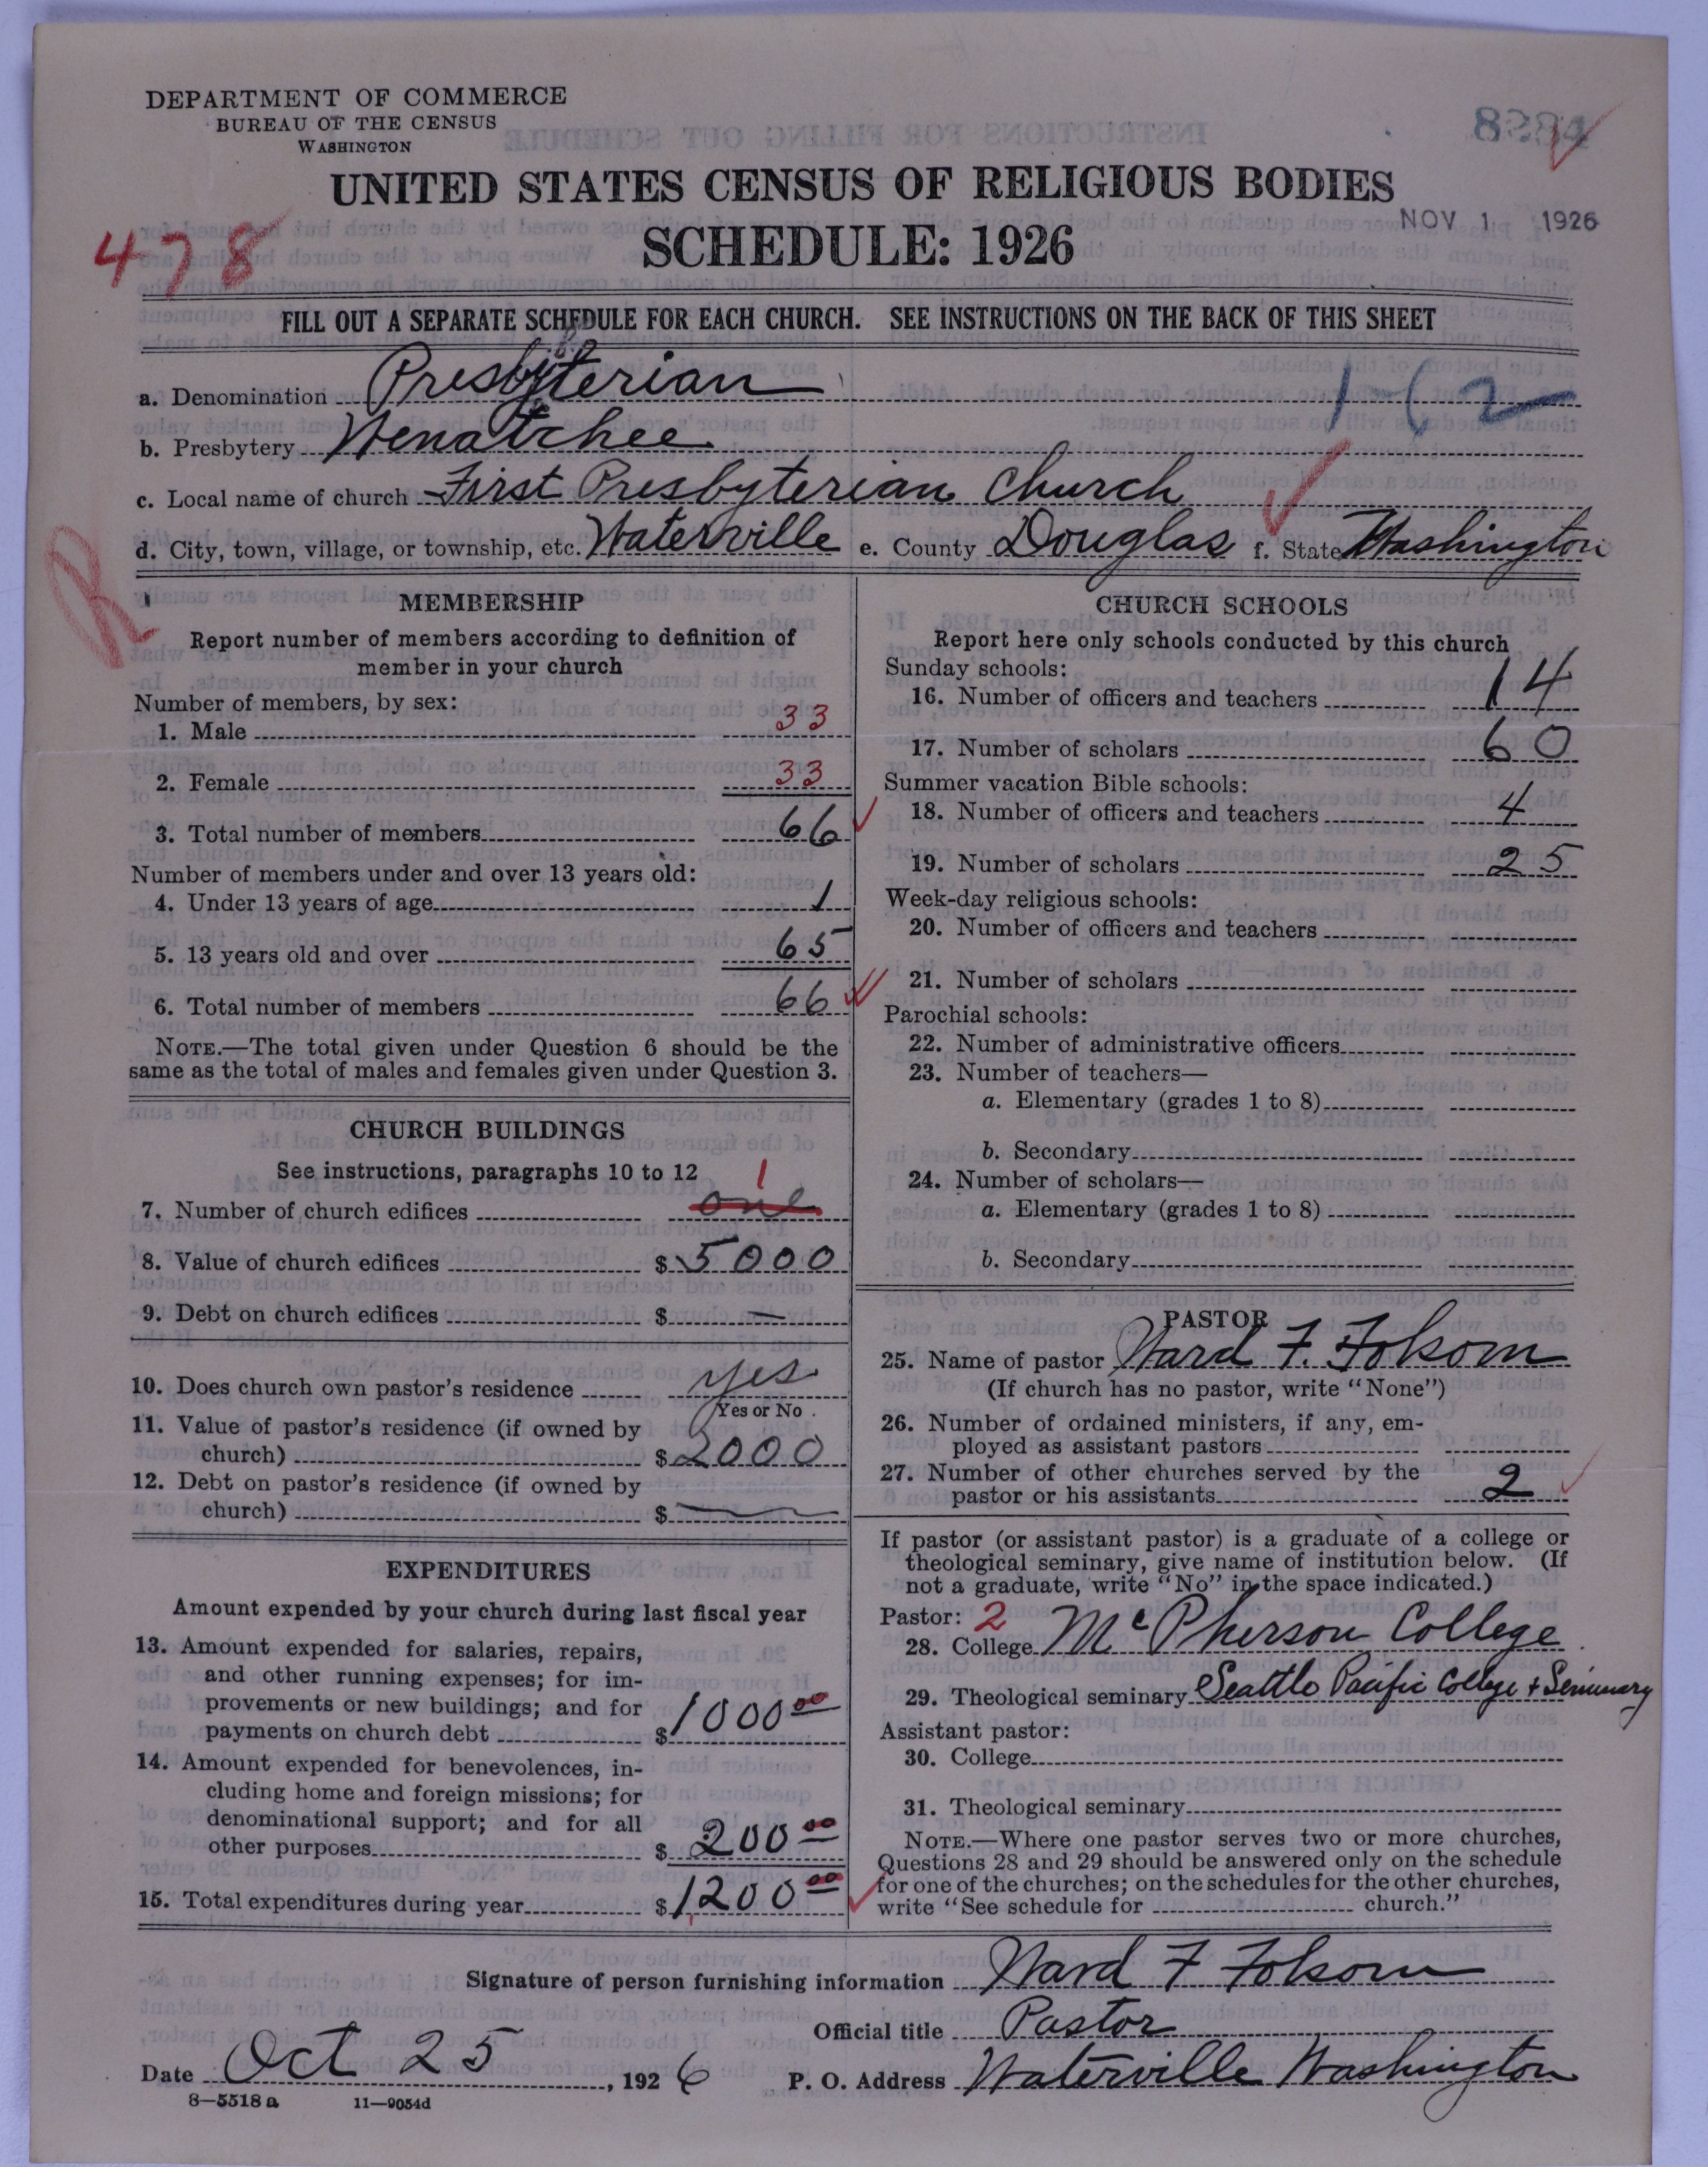 DEPARTMENT OF COMMERCE
BUREAU OF THE CENSUS
WASHINGTON
UNITED STATES CENSUS OF RELIGIOUS BODIES
NOV 1 1926
478
SCHEDULE: 1926
FILL OUT A SEPARATE SCHEDULE FOR EACH CHURCH. SEE INSTRUCTIONS ON THE BACK OF THIS SHEET
a. Denomination Presbyterian
b. Presbytery Wenatchee
c. Local name of church First Presbyterian Church
d. City, town, village, or township, etc. Waterville e. County Douglas f. State Washington
R
MEMBERSHIP
Report number of members according to definition of
member in your church
Number of members, by sex:
1. Male 33
2. Female 33
3. Total number of members 66
Number of members under and over 13 years old:
4. Under 13 years of age 1
5. 13 years old and over 65
6. Total number of members 66
NOTE.—The total given under Question 6 should be the
same as the total of males and females given under Question 3.
CHURCH BUILDINGS
See instructions, paragraphs 10 to 12
1
7. Number of church edifices one
8. Value of church edifices $ 5000
9. Debt on church edifices $ —
10. Does church own pastor's residence yes
Yes or No
11. Value of pastor's residence (if owned by
church) $ 2000
12. Debt on pastor's residence (if owned by
church) $ —
EXPENDITURES
Amount expended by your church during last fiscal year
13. Amount expended for salaries, repairs,
and other running expenses; for im-
provements or new buildings; and for
payments on church debt $ 1000 00
14. Amount expended for benevolences, in-
cluding home and foreign missions; for
denominational support; and for all
other purposes $ 200 00
15. Total expenditures during year $ 1200 00
CHURCH SCHOOLS
Report here only schools conducted by this church
Sunday schools:
16. Number of officers and teachers 14
17. Number of scholars 60
Summer vacation Bible schools:
18. Number of officers and teachers 4
19. Number of scholars 25
Week-day religious schools:
20. Number of officers and teachers
21. Number of scholars
Parochial schools:
22. Number of administrative officers
23. Number of teachers—
a. Elementary (grades 1 to 8)
b. Secondary
24. Number of scholars—
a. Elementary (grades 1 to 8)
b. Secondary
PASTOR
25. Name of pastor Ward F. Folsom
(If church has no pastor, write "None")
26. Number of ordained ministers, if any, em-
ployed as assistant pastors
27. Number of other churches served by the
pastor or his assistants 2
If pastor (or assistant pastor) is a graduate of a college or
theological seminary, give name of institution below. (If
not a graduate, write "No" in the space indicated.)
Pastor: 2
28. College McPherson College
29. Theological seminary Seattle Pacific College + Seminary
Assistant pastor:
30. College
31. Theological seminary
NOTE.—Where one pastor serves two or more churches,
Questions 28 and 29 should be answered only on the schedule
for one of the churches; on the schedules for the other churches,
write "See schedule for church."
Signature of person furnishing information Ward F Folsom
Official title Pastor
Date Oct 25, 1926 P. O. Address Waterville Washington
8—5518 a 11—9054d